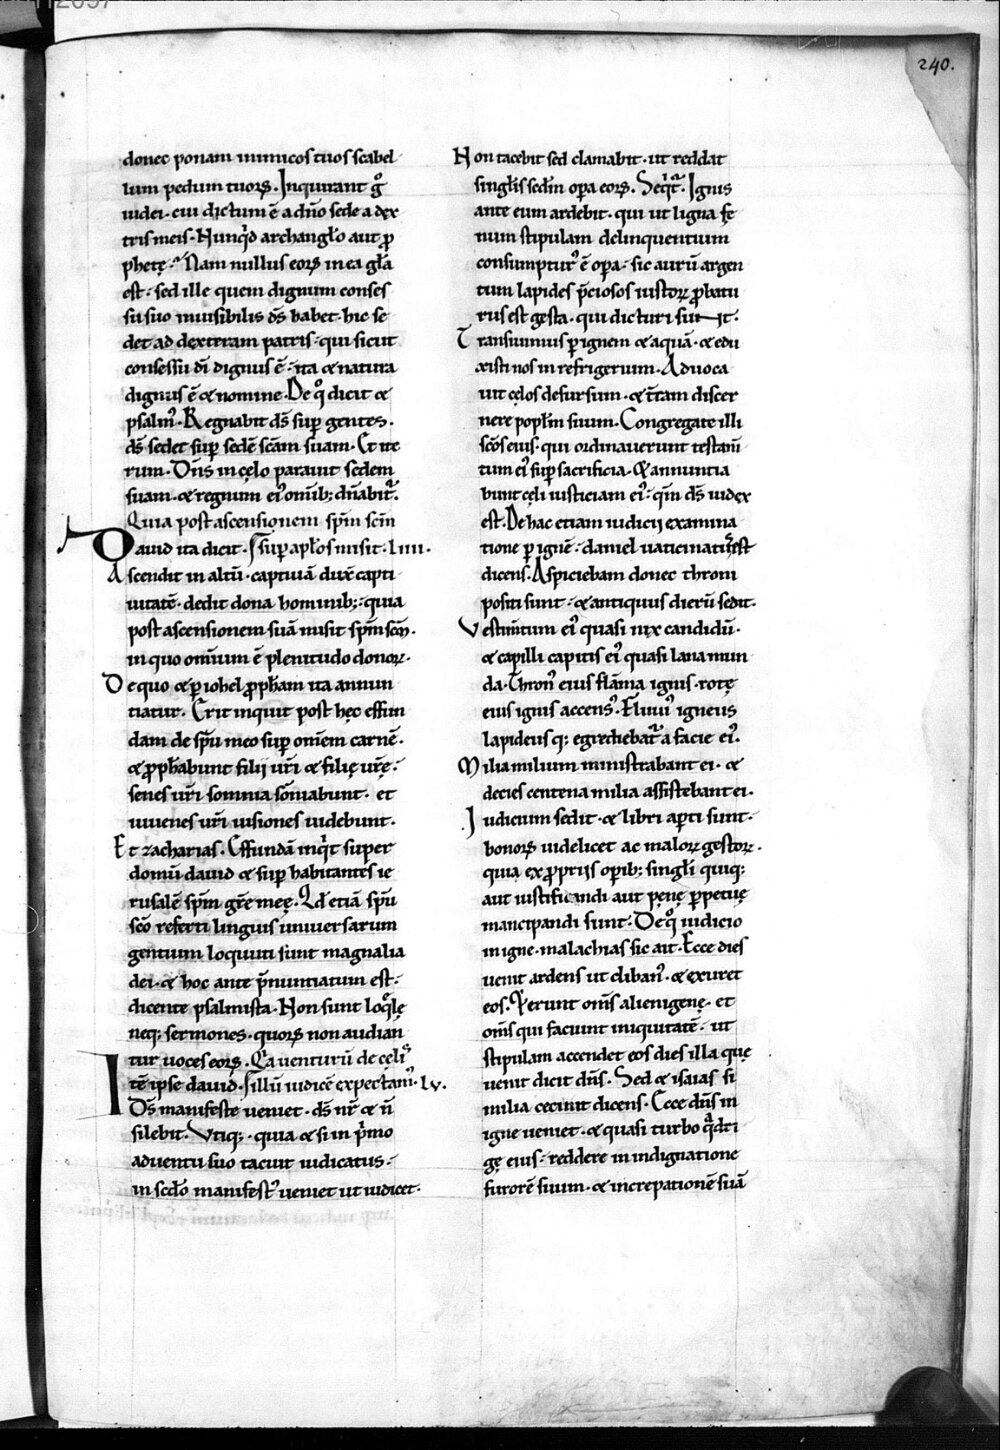 240.
donec ponam inimicos tuos scabel
lum pedum tuoꝝ. Inquirant g̊
iudei. cui dictum ē a dn̄o sede a dex
tris meis. Nunq̇d archangl̓o aut ꝓ
phetę. Nam nullus eoꝝ in ea gl̄a
est. sed ille quem dignum conses
su suo inuisibilis ds̄ habet. hic se
det ad dexteram patris. qui sicut
consessu dī dignus ē. ita & natura
dignus ē & nomine. De q̊ dicit &
psalmꝰ. Regnabit ds̄ suꝑ gentes.
ds̄ sedet suꝑ sedē scām suam. Et ite
rum. Dn̄s in cęlo parauit sedem
suam. & regnum eiꝰ om̄ib; dn̄abit᷑.
Quia post ascensionem spm̄ scm̄
Dauid ita dicit. suꝑ apl̓os misit. Liiii.
Ascendit in altū. captiuā duxͨ capti
uitatē. dedit dona hominib;. quia
post ascensionem suā misit spm̄ scm̄.
in quo omium ē plenitudo donoꝝ.
De quo & ꝑ iohel ꝓph̄am ita annun
tiatur. Erit inquit post hęc effun
dam de spū meo suꝑ om̄em carnē.
& ꝓph̄abunt filij uri̅ & filię ure̅.
senes uri̅ somnia som̄iabunt. et
iuuenes uri̅ uisiones uidebunt.
Et zacharias. Effundā inq̇t super
domū dauid & suꝑ habitantes ie
rusalē spm̄ gre̅ meę. Qd̄ etiā spū
scō referti linguis uniuersarum
gentium loquuti sunt magnalia
dei. & hoc ante p̄nuntiatum est.
dicente psalmista. Non sunt loq̊lę
neq; sermones. quoꝝ non audian
tur uoces eoꝝ. Ea uenturū de cęliˢ
Itē ipse dauid. illū iudicē expectamꝰ. Lv.
Ds̄ manifeste ueniet. ds̄ nr̄ & n̄
silebit. Vtiq;. quia & si in p̄mo
aduentu suo tacuit iudicatus.
in scdō manifestꝰ ueniet ut iudicet.
Non tacebit sed clamabit. ut reddat
singl̓is scdm̄ oꝑa eoꝝ. Seq̇t᷑. Ignis
ante eum ardebit. qui ut ligna fę
num stipulam delinquentium
consumpturꝰ ē oꝑa. sic aurū argen
tum lapides p̄ciosos iustoꝝ ꝓbatu
rus est gesta. qui dicturi sunt.
Transiuimus ꝑ ignem & aquā. & edu
xisti nos in refrigerium. Aduoca
uit cęlos desursum. & tr̄am discer
nere popl̓m suum. Congregate illi
scōs eius. qui ordinauerunt testam̄
tum eiꝰ suꝑ sacrificia. & annuntia
bunt cęli iusticiam eiꝰ. qm̄ ds̄ iudex
est. De hac etiam iudicij examina
tione ꝑ ignē. daniel uaticinatꝰ est
dicens. Aspiciebam donec throni
positi sunt. & antiquus dierū sedit.
Vestim̄tum eiꝰ quasi nix candidū.
& capilli capitis eiꝰ quasi lana mun
da. Thronꝰ eius flāma ignis. rotę
eius ignis accensꝰ. Fluuiꝰ igneus
lapideusq; egrediebat᷑ a facie eiꝰ.
Milia milium ministrabant ei. &
decies centena milia assistebant ei.
Iudicium sedit. & libri aꝑti sunt.
bonoꝝ uidelicet ac maloꝝ gestoꝝ.
quia ex ꝓprijs oꝑib; singl̓i quiq;
aut iustificandi aut penę ꝑpetuę
mancipandi sunt. De q̊ iudicio
in igne. malachias sic ait. Ecce dies
uenit ardens ut clibanꝰ. & exuret
eos. Et erunt oms̄ alienigenę. et
oms̄ qui faciunt iniquitatē. ut
stipulam accendet eos dies illa quę
uenit dicit dn̄s. Sed & isaias si
milia cecinit dicens. Ecce dn̄s in
igne ueniet. & quasi turbo q̈dri
gę eius. reddere in indignatione
furorē suum. & increpationē suā